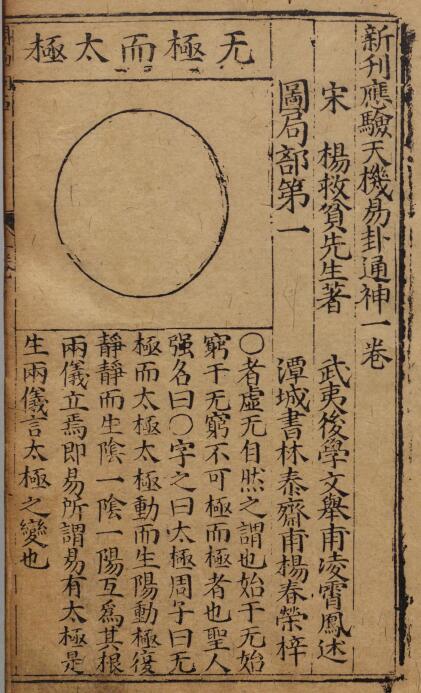 新刊應驗天機易卦通神一卷
宋　楊救貧先生著　武夷後學文舉甫凌霄鳳述
潭城書林泰齋甫楊春榮梓
圖局部第一
无極而太極
〇者虛无自然之謂也始于无始
窮于无窮不可極而極者也聖人
强名曰〇字之曰太極周子曰无
極而太極太極動而生陽動極復
靜靜而生陰一陰一陽互爲其根
兩儀立焉即易所謂易有太極是
生兩儀言太極之變也